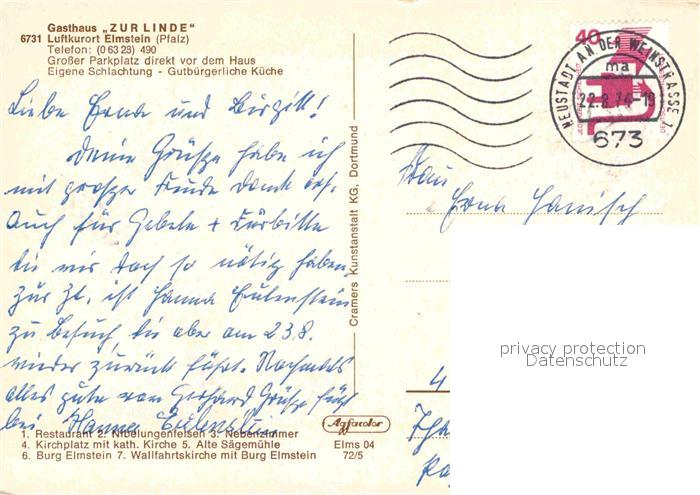 Gasthaus „ZUR LINDE"
6731 Luftkurort Elmstein (Pfalz)
Telefon: (0 63 28) 490
Großer Parkplatz direkt vor dem Haus
Eigene Schlachtung - Gutbürgerliche Küche
Liebe Erna und Birgitt!
Deine Grüße habe ich
mit großer Freude dank erh.
Auch für Gebete + Fürbitte
die wir doch so nötig haben,
zur Zt. ist Hanna Eulenstein
zu Besuch, die aber am 23.8.
wieder zurück fährt. Nochmals
alles gute vom Gerhard Grüße
Hanna Eulenstein
1. Restaurant 2. Nibelungenfelsen 3. Nebenzimmer
4. Kirchplatz mit kath. Kirche 5. Alte Sägemühle
6 Burg Elmstein 7. Wallfahrtskirche mit Burg Elmstein
Agfacolor
Elms 04
72/5
Cramers Kunstanstalt KG, Dortmund
40
NEUSTADT AN DER WEINSTRASSE 1
ma
22.8.74-19
673
Frau
Erna Hanisch
4
privacy protection
Datenschutz